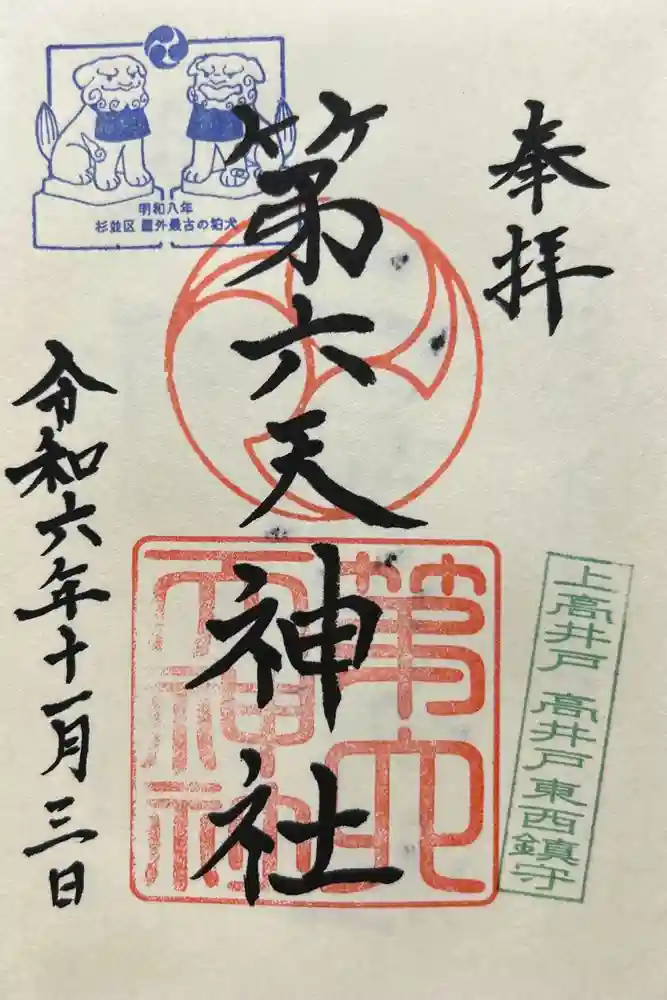 奉拝
第六天神社
令和六年十一月三日
明和八年
杉並区 屋外最古の狛犬
第六
天神社
上高井戸 高井戸東西鎮守